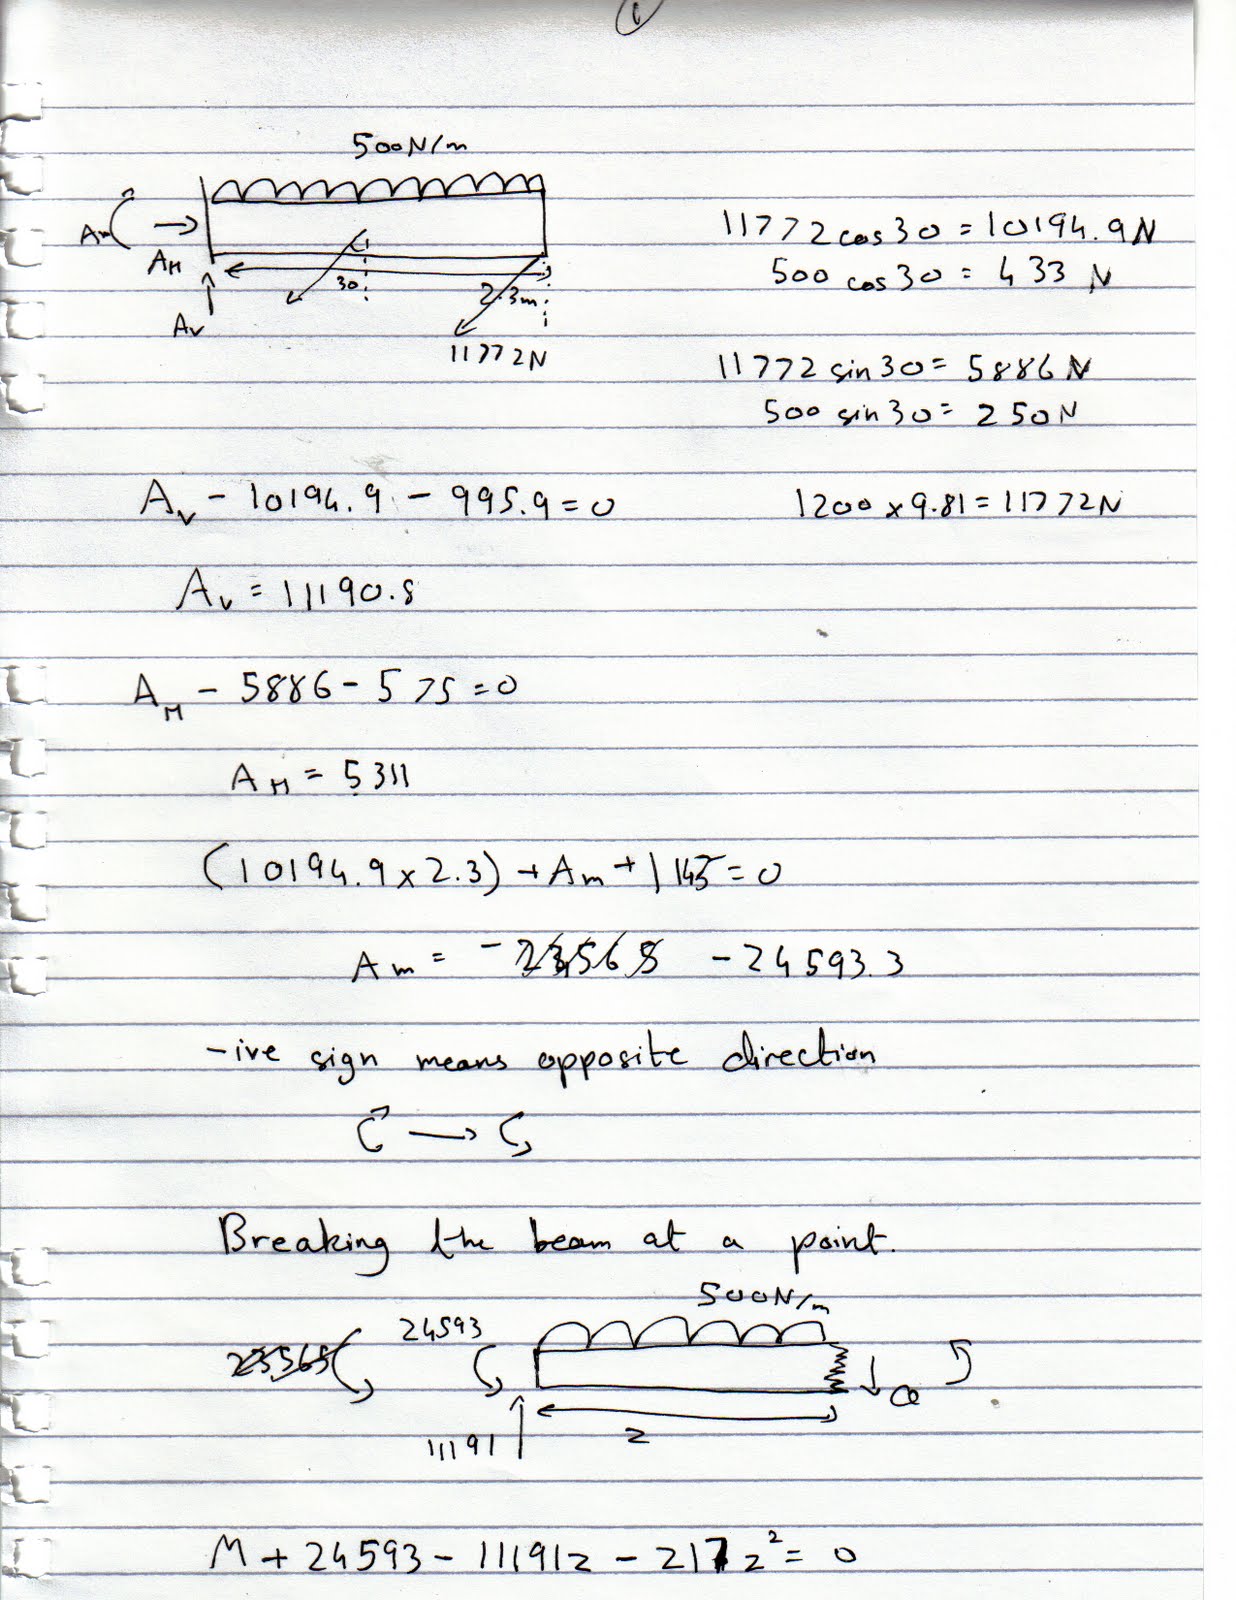 1
500N/m
Am
AH
Av
30
2.3m
11772N
11772 cos30 = 10194.9N
500 cos30 = 433 N
11772 sin30 = 5886 N
500 sin30 = 250N
Av - 10194.9 - 995.9 = 0
1200 x 9.81 = 11772N
Av = 11190.8
AH - 5886 - 575 = 0
AH = 5311
(10194.9 x 2.3) + Am + 1145 = 0
Am = - 23565 - 24593.3
-ive sign means opposite direction
Breaking the beam at a point.
500N/m
23565
24593
Q
z
11191
M + 24593 - 11191z - 217z² = 0